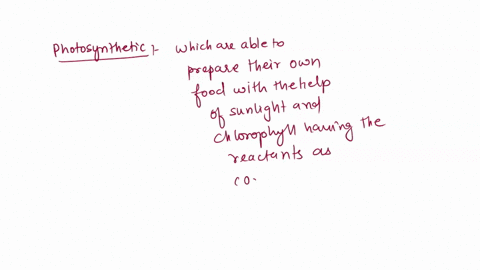 Photosynthetic :- which are able to
prepare their own
food with the help
of sunlight and
chlorophyll having the
reactants as
co.